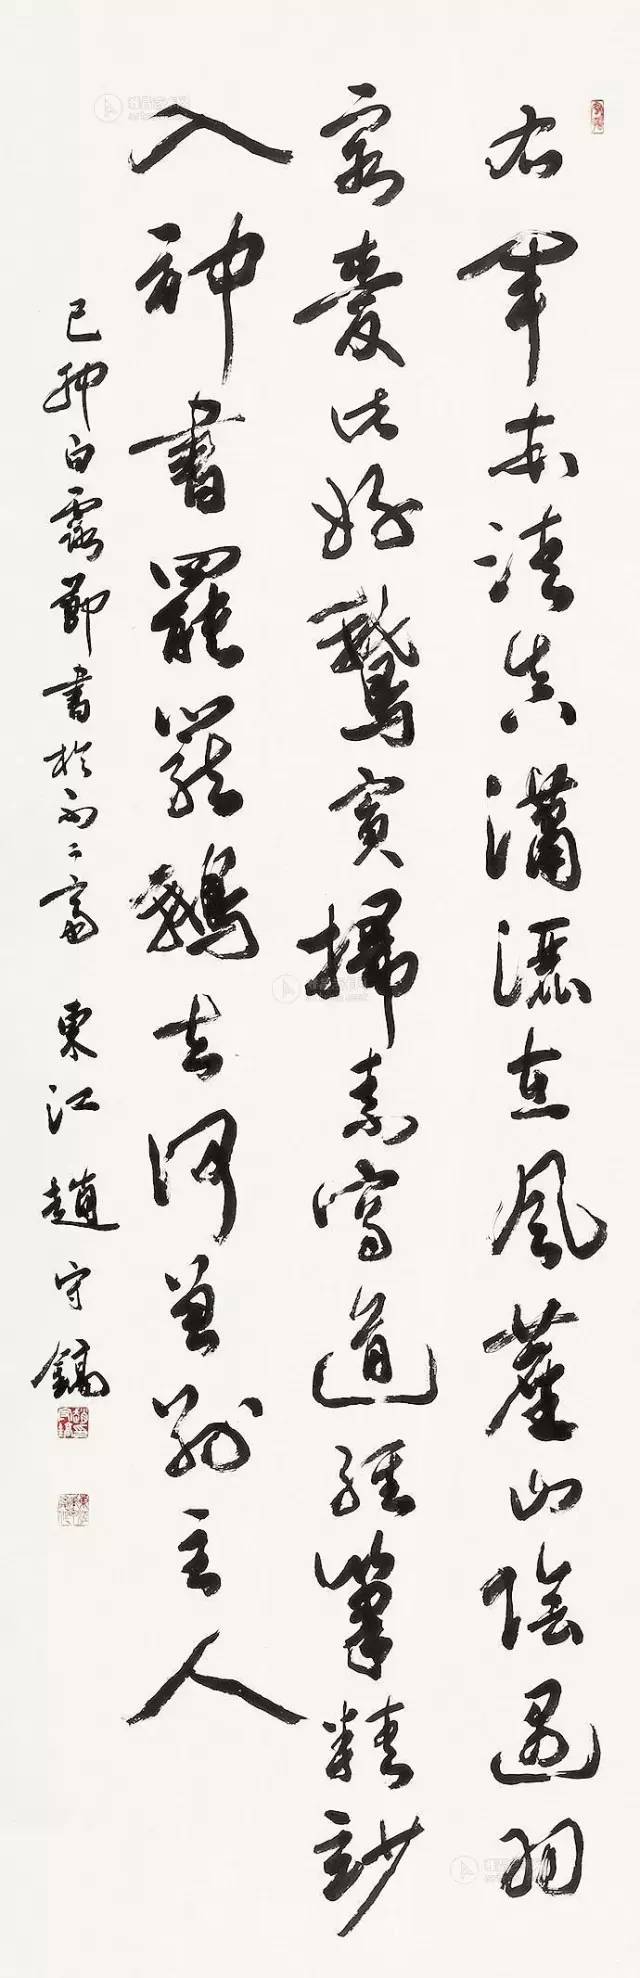 右軍本清真瀟灑在風塵山陰遇羽
客愛此好鵝賓掃素寫道經筆精妙
入神書罷籠鵝去何曾別主人
己卯白露節書於不二齋 東江趙守鎬